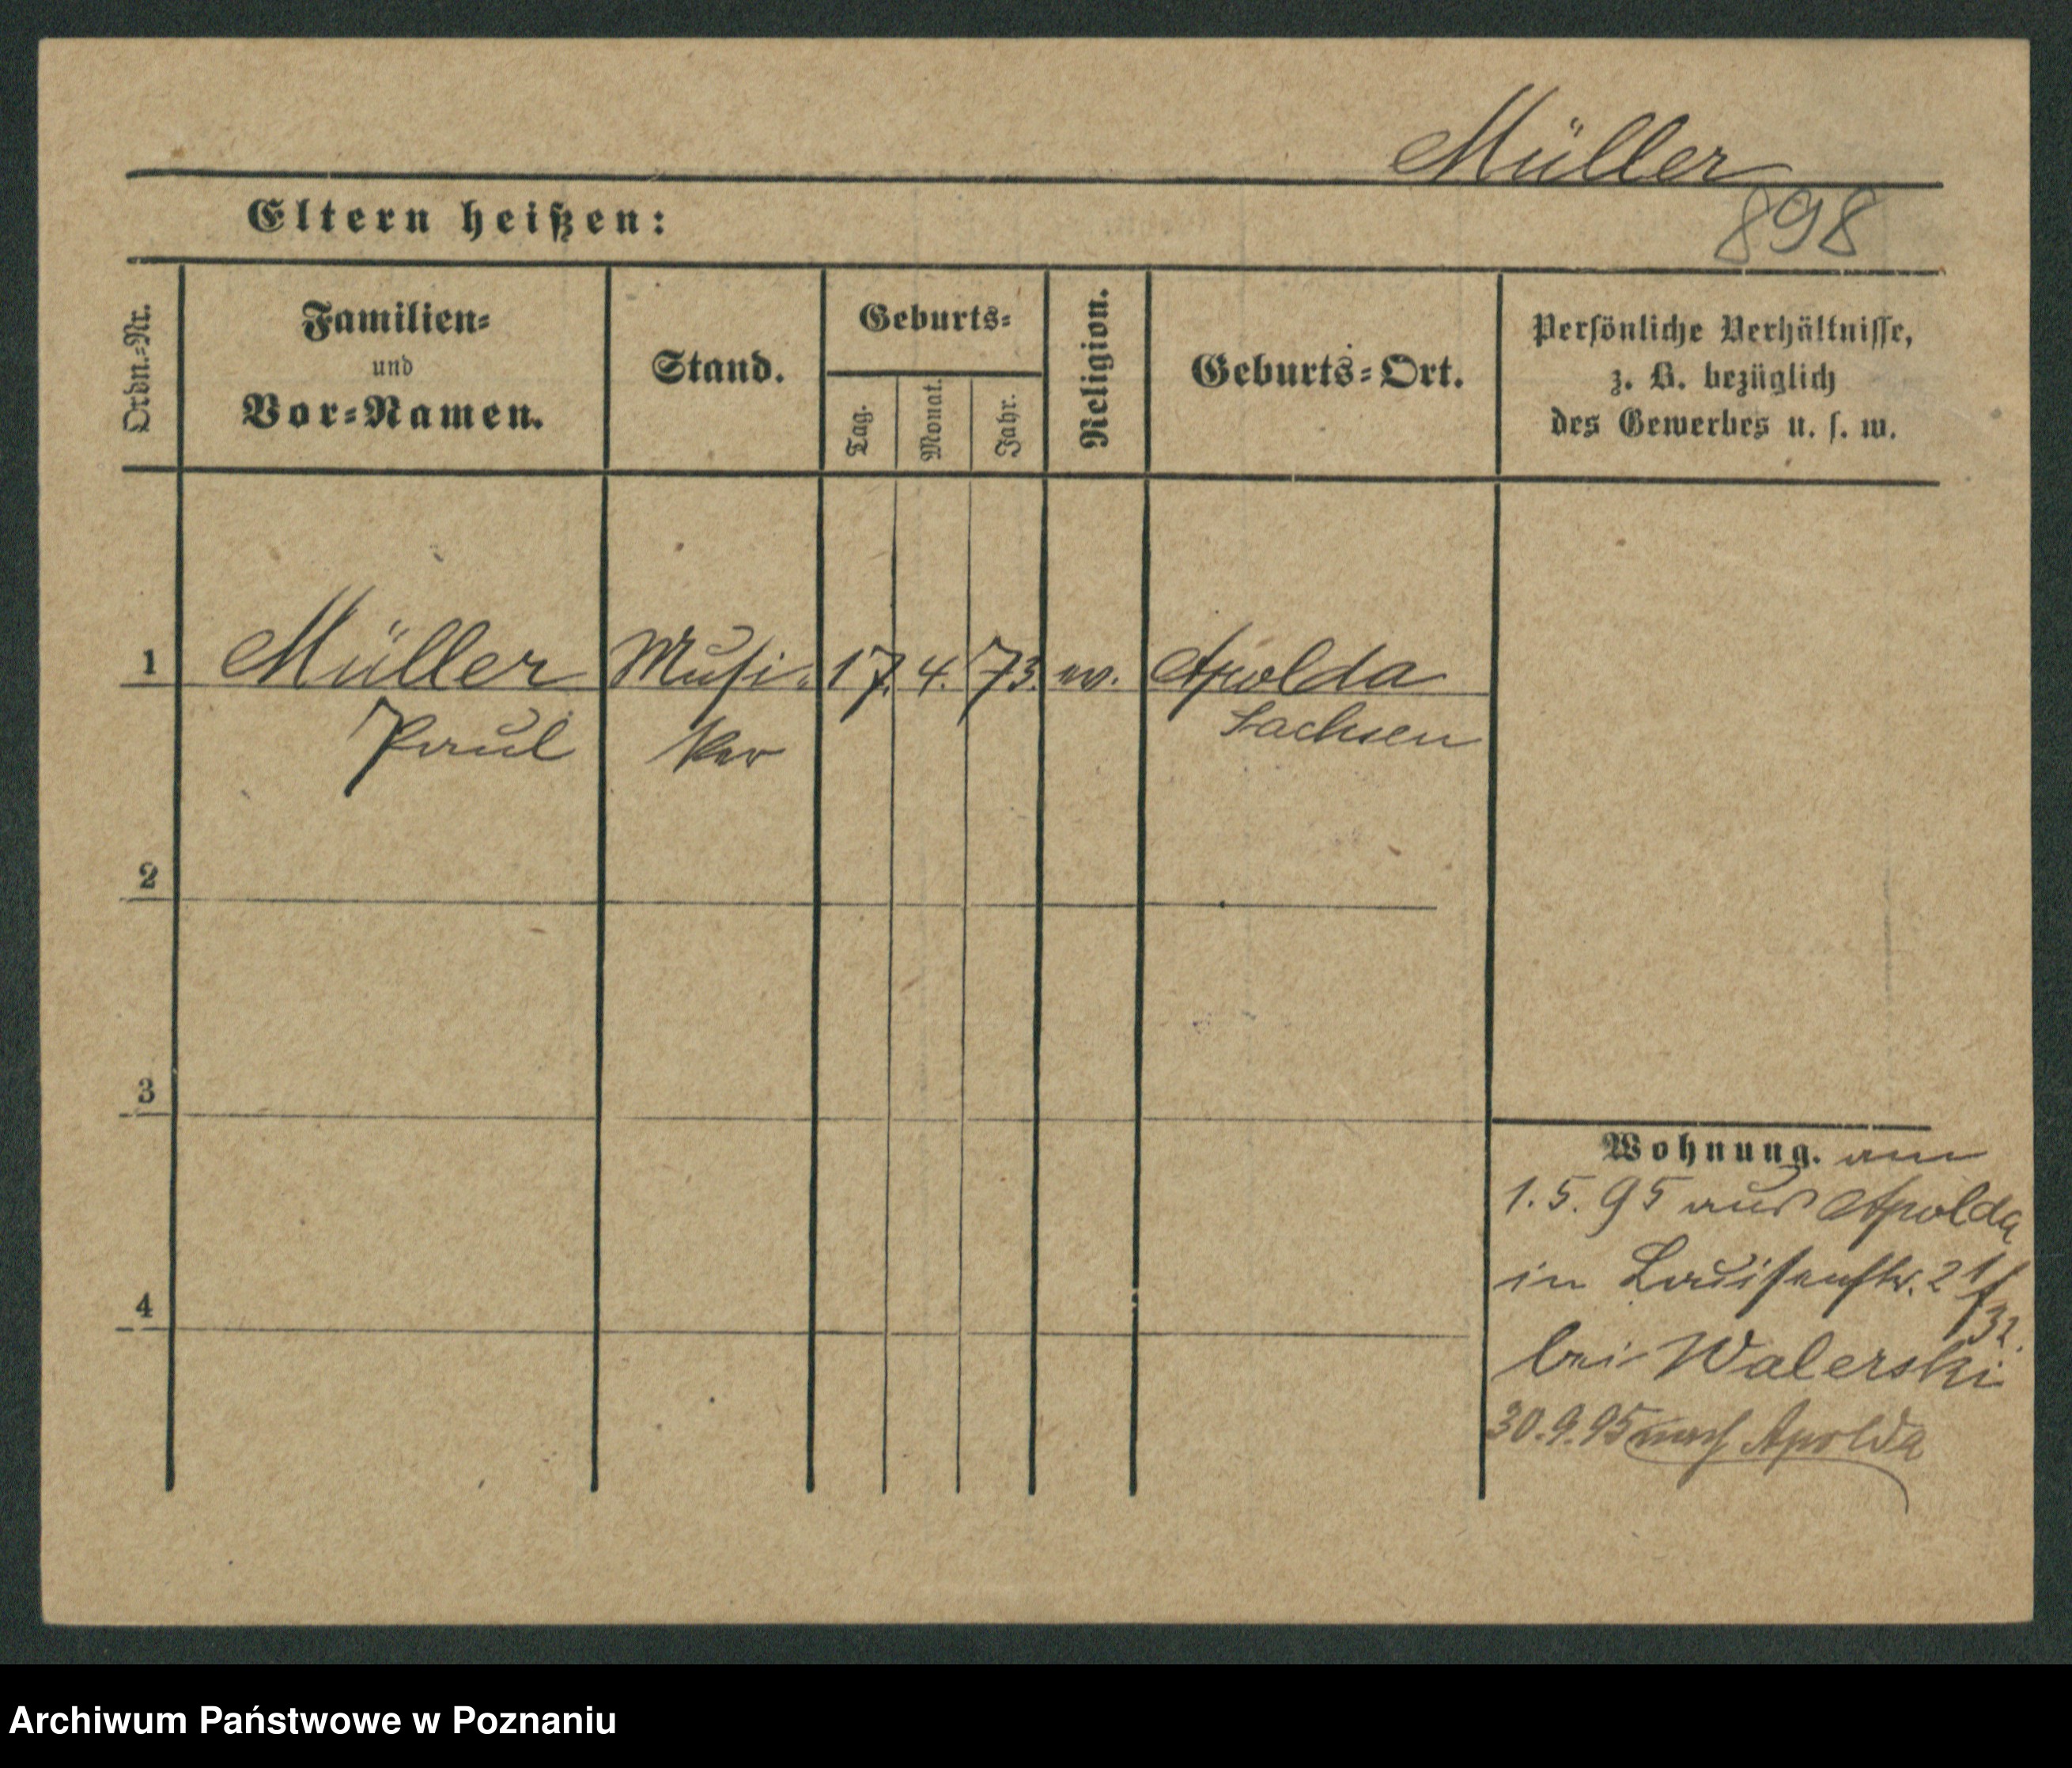 Müller
Eltern heißen:
898
Ordn.-Nr.
Familien-
und
Vor-Namen.
Stand.
Geburts-
Tag.
Monat.
Jahr.
Religion.
Geburts-Ort.
Persönliche Verhältnisse,
z. B. bezüglich
des Gewerbes u. s. w.
1 Müller Musi- 17. 4. 73. ev. Apolda
Paul ker Sachsen
2
3
4
Wohnung. am
1. 5. 95 aus Apolda
in Louisenstr. 21
bei Walerski
30.9.95 nach Apolda
Archiwum Państwowe w Poznaniu